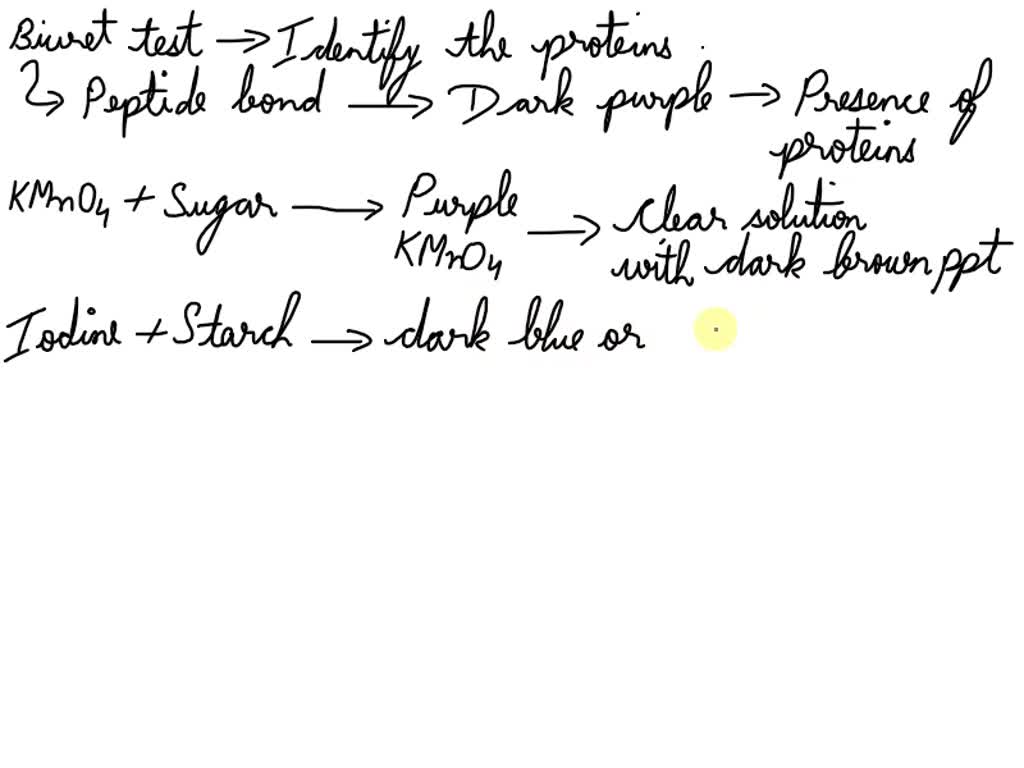 Biuret test → Identify the proteins.
↳ Peptide bond → Dark purple → Presence of
proteins
KMnO4 + Sugar → Purple
KMnO4 → Clear solution
with dark brown ppt
Iodine + Starch → dark blue or